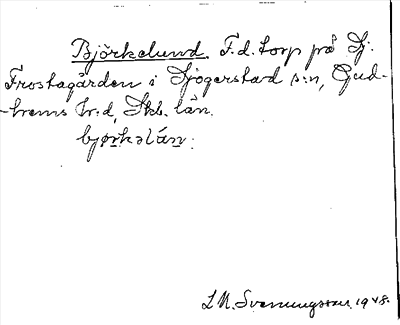 Björkelund. F.d. torp på Sj.
Frostagården i Sjogerstad s:n, Gud-
-hems hr.d, Skb. län.
bjørkəlán.
L M. Svenungsson 1948.